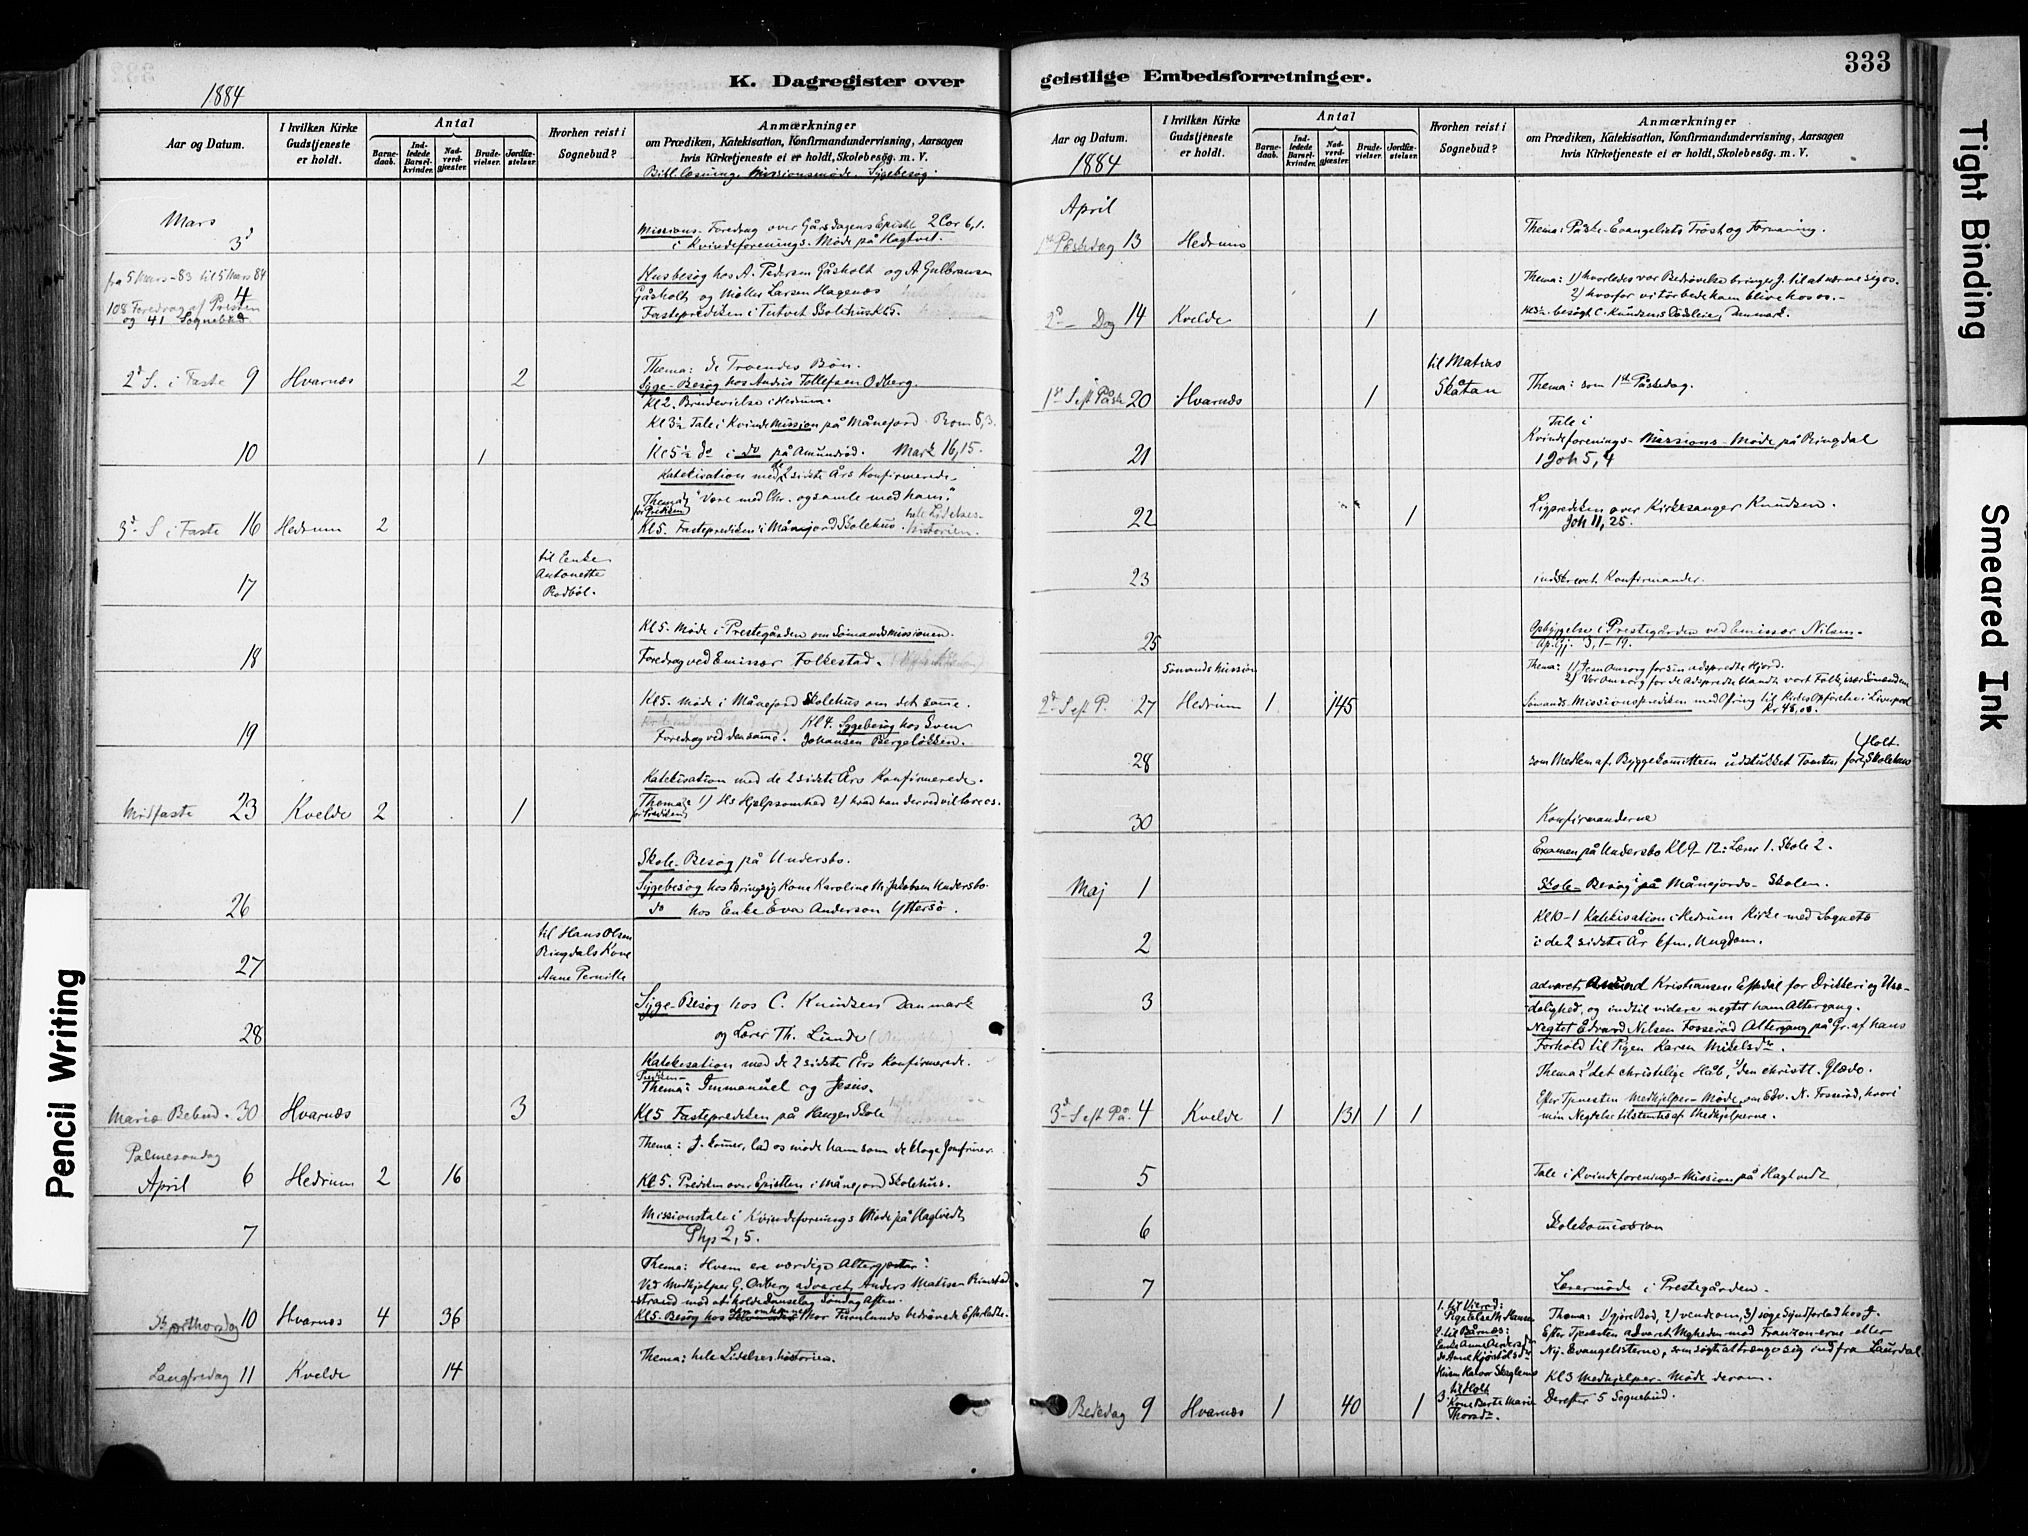 K. Dagregister over
1884
Aar og Datum.
I hvilken Kirke Gudstjeneste er holdt.
Antal
Barnedaab.
Indledede Barselkvinder.
Nadverdgjæster.
Brudevielser.
Jordfæstelser.
Hvorhen reist i Sognebud?
Anmærkninger
om Prædiken, Katekisation, Konfirmandundervisning, Aarsagen
hvis Kirketjeneste ei er holdt, Skolebesög. m. V.
Bibellæsning. Missionsmøde. Sygebesøg.
Mars
3d
Missions-Foredrag over Gårsdagens Epistel 2 Cor 6,1.
i Kvindeforenings-Møde på Hagtvet.
fra 5 Mars-83 til 5 Mars 84
108 Foredrag af Presten
og 41 Sognebud
4
Husbesøg hos A. Pedersen Gåsholt og A Gulbransen
Gåsholt og Møller Larsen Hagenæs
Fasteprediken i Tutvet Skolehus Kl 5.
2d S. i Faste 9 Hvarnæs 2
Thema: de Troendes Bøn.
Syge-Besøg hos Andris Tollefsen Odberg.
10 1
Kl 2. Brudevielse i Hedrum.
Kl 3½ Tale i Kvindemission på Månejord. Rom 8,3.
Kl 5½ do i do på Amundrød. Mark 16,15.
3d S i Faste 16 Hedrum 2
Katekisation med de 2 sidste Års Konfirmerede.
Thema for Prediken: "Være med Chr. og samle med ham".
Kl 5. Fasteprediken i Månejord Skolehus. hele Lidelseshistorien.
17
til Enke
Antonette
Rødbøl.
18
Kl 5. Møde i Prestegården om Sømandsmissionen.
Foredrag ved Emissær Folkestad.
19
Kl 5. Møde i Månejord Skolehus om det samme.
Foredrag ved den samme. Kl 4. Sygebesøg hos Sven
Johansen Bergeløkken.
Midfaste 23 Kvelde 2 1
Katekisation med de 2 sidste Års Konfirmerede.
Thema for Prediken: 1) Hs Hjælpsomhed 2) hvad han derved vil lære os.
26
Skole-Besøg på Undersbo.
Sygebesøg hos tæringssyg Kone Karoline M. Jakobsen Undersbo.
do hos Enke Eva Anderson Yttersø.
27
til Hans Olsen
Ringdals Kone
Anne Pernille
28
Syge-Besøg hos C. Knudsen Danmark
og Lærer Th. Lunde
Mariæ Bebud. 30 Hvarnæs 3
Katekisation med de 2 sidste Års Konfirmerede.
Prediken-
Thema: Immanuel og Jesus.
Kl 5 Fasteprediken på Haugen Skole
Palmesøndag
April 6 Hedrum 2 16
Thema: J. kommer, lad os møde ham som de kloge Jomfruer.
Kl 5. Prediken over Epistlen i Månejord Skolehus.
7
Missionstale i Kvindeforenings Møde på Hagtvedt
Php 2,5.
Skjærthorsdag 10 Hvarnæs 4 36
Thema: Hvem ere værdige Altergjæster?
Ved Medhjelper G. Odberg advaret Anders Matisen Rimstad-
strand mod at holde Danselag Søndag Aften.
Kl 5. Besøg hos Thor Furulunds bedrøvede Efterladte.
Langfredag 11 Kvelde 14
Thema: hele Lidelseshistorien.
geistlige Embedsforretninger.
333
Aar og Datum.
1884
I hvilken Kirke Gudstjeneste er holdt.
Antal
Barnedaab.
Indledede Barselkvinder.
Nadverdgjæster.
Brudevielser.
Jordfæstelser.
Hvorhen reist i Sognebud?
Anmærkninger
om Prædiken, Katekisation, Konfirmandundervisning, Aarsagen
hvis Kirketjeneste ei er holdt, Skolebesög. m. V.
April
1ste Påskedag 13 Hedrum
Thema: Påske-Evangeliets Trøst og Formaning.
2d - Dag 14 Kvelde 1
Thema: 1) hvorledes vor Bedrøvelse bringer J. til at nærme sig os.
2) hvorfor vi tør bede ham blive hos os.-
Kl 3½ besøgt C. Knudsens Dødsleie, Danmark.
1ste S eft Påske 20 Hvarnæs 1
til Matias
Skåtan
Thema: som 1ste Påskedag.
21
Tale i
Kvindeforenings-Missions-Møde på Ringdal
1 Joh 5,4
22 1
Ligprediken over Kirkesanger Knudsen.
Joh 11,25.
23
indskrevet Konfirmander.
25
Opbyggelse i Prestegården ved Emissær Nilsen-
Ap. Gj. 3,1-19.
Sømandsmission
2d S eft P. 27 Hedrum 1 145
Thema: 1) Jesu Omsorg for sin adspredte Hjord.
2) Vor Omsorg for de Adspredte blandt vort Folk, især Sømænden
Sømands Missionsprediken med Ofring til Kirkes Opførelse i Liverpool
Kr 48,00.
28
som Medlem af Byggekomitteen udstukket Tomten for Holt Skolehus
30
Konfirmanderne
Maj 1
Examen på Undersbo Kl 9-12: Lærer 1. Skole 2.
Skole-Besøg på Månejords-Skolen.
2
Kl 10-1 Katekisation i Hedrum Kirke med Sognets
i de 2 sidste År kfm. Ungdom.
3
advaret Amund Kristiansen Eftedal for Drikkeri og Usæ-
delighed, og indtil videre negtet ham Altergang.
Negtet Edvard Nilsen Fosserød Altergang på Gr. af hans
Forhold til Pigen Karen Mikelsdr.
3d S eft På. 4 Kvelde 1 131 1 1
Thema: det christelige Håb, den christl. Glæde.
Efter Tjenesten Medhjelper-Møde om Edv. N. Fosserød, hvori
min Negtelse tilstemtes af Medhjelperne.
5
Tale i Kvindeforenings-Mission på Hagtvedt
6
Skolekomission
7
Lærermøde i Prestegården.
Bededag 9 Hvarnæs 1 40 1
1. til Vierød:
Pige Elise M. Hansen
2. til Bårnæs:
Enke Anne Andersdr
3. til Holt
Kone Berte Marie
Thorsdr.
Thema: 1) gjøre Bod, 2) vende om, 3) søge Syndforlad hos J.
Efter Tjenesten advaret Mgheden mod Franzonerne eller
Ny-Evangelisterne, som søgte at trænge sig ind fra Laurdal.
Kl 3 Medhjelper-Møde derom.
Derefter 5 Sognebud.
Tight Binding
Smeared Ink
Pencil Writing